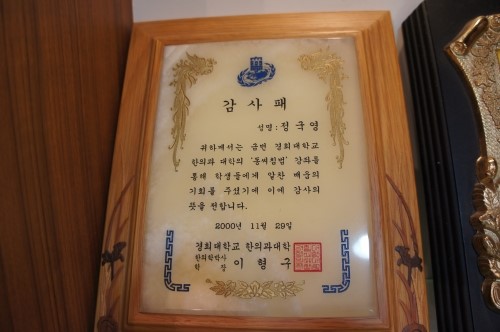 감사패
성명:정국영
귀하께서는 금번 경희대학교
한의과 대학의 '동씨침법' 강좌를
통해 학생들에게 알찬 배움의
기회를 주셨기에 이에 감사의
뜻을 전합니다.
2000년 11월 29일
경희대학교 한의과대학
한의학박사
학장 이형구